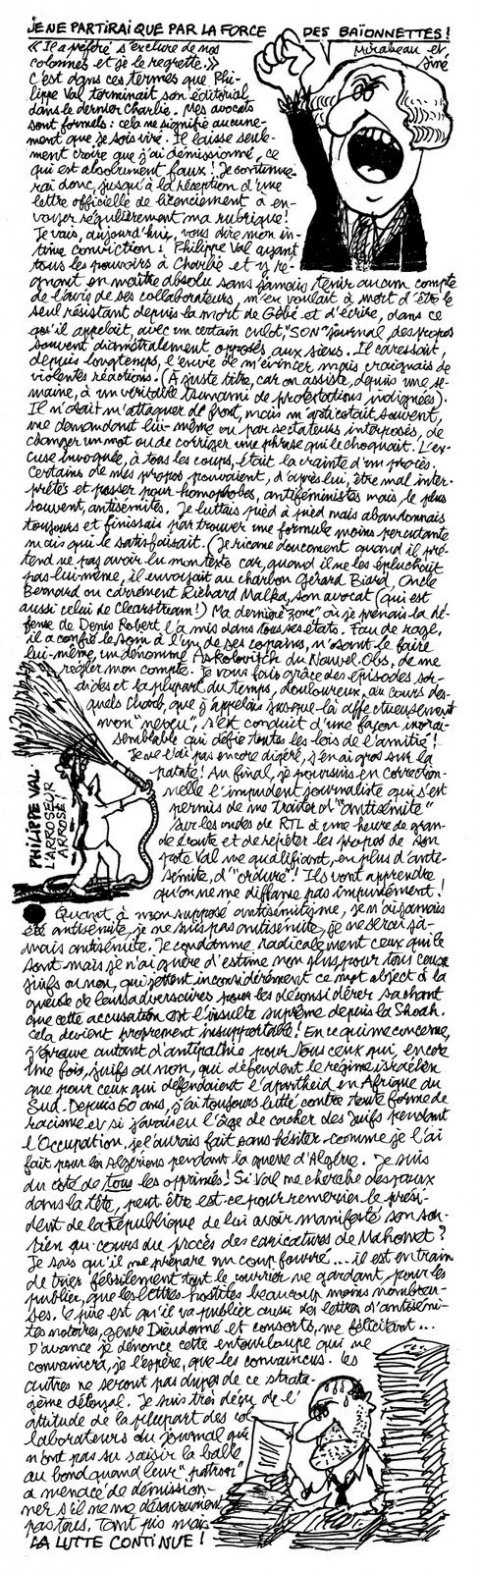 JE NE PARTIRAI QUE PAR LA FORCE DES BAÏONNETTES !
Mirabeau et
Siné
« Il a préféré s'exclure de nos
colonnes et je le regrette. »
C'est dans ces termes que Phi-
lippe Val terminait son éditorial
dans le dernier Charlie. Mes avocats
sont formels : cela ne signifie aucune-
ment que je sois viré. Il laisse seule-
ment croire que j'ai démissionné, ce
qui est absolument faux ! Je continue-
rai donc, jusqu'à la réception d'une
lettre officielle de licenciement à en-
voyer régulièrement ma rubrique !
Je vais, aujourd'hui, vous dire mon in-
time conviction : Philippe Val ayant
tous les pouvoirs à Charlie et y ré-
gnant en maître absolu sans jamais tenir aucun compte
de l'avis de ses collaborateurs, m'en voulait à mort d'être le
seul résistant depuis la mort de Gébé et d'écrire, dans ce
qu'il appelait, avec un certain culot, "SON" journal, des propos
souvent diamétralement opposés aux siens. Il caressait,
depuis longtemps, l'envie de m'évincer mais craignait de
violentes réactions. (A juste titre, car on assiste, depuis une se-
maine, à un véritable tsunami de protestations indignées).
Il n'osait m'attaquer de front, mais m'asticotait souvent,
me demandant lui-même ou par sectateurs interposés, de
changer un mot ou de corriger une phrase qui le choquait. L'ex-
cuse invoquée, à tous les coups, était la crainte d'un procès.
Certains de mes propos pouvaient, d'après lui, être mal inter-
prétés et passer pour homophobes, antiféministes mais le plus
souvent, antisémites. Je luttais pied à pied mais abandonnais
toujours et finissais par trouver une formule moins percutante
mais qui le satisfaisait. (Je ricane doucement quand il pré-
tend ne pas avoir lu mon texte car, quand il ne les épluchait
pas lui-même, il envoyait au charbon Gérard Biard, Oncle
Bernard ou carrément Richard Malka, son avocat (qui est
aussi celui de Clearstream !) Ma dernière "zone" où je prenais la dé-
fense de Denis Robert l'a mis dans tous ses états. Fou de rage,
il a confié le soin à l'un de ses copains, n'osant le faire
lui-même, un dénommé Askolovitch du Nouvel Obs, de me
régler mon compte. Je vous fais grâce des épisodes sor-
dides et la plupart du temps, douloureux, au cours des-
quels Charb, que j'appelais jusque-là affectueusement
mon "neveu", s'est conduit d'une façon invrai-
semblable qui défie toutes les lois de l'amitié !
Je ne l'ai pas encore digéré, j'en ai gros sur la
patate ! Au final, je poursuis en correction-
nelle l'impudent journaliste qui s'est
permis de me traiter d'"antisémite"
sur les ondes de RTL à une heure de gran-
de écoute et de répéter les propos de son
pote Val me qualifiant, en plus d'anti-
sémite, d'"ordure" ! Ils vont apprendre
qu'on ne me diffame pas impunément !
PHILIPPE VAL :
L'ARROSEUR
ARROSÉ !
Quant à mon supposé antisémitisme, je n'ai jamais
été antisémite, je ne suis pas antisémite, je ne serai ja-
mais antisémite. Je condamne radicalement ceux qui le
sont mais je n'ai guère d'estime non plus pour tous ceux,
juifs ou non, qui jettent inconsidérément ce mot abject à la
gueule de leurs adversaires pour les déconsidérer sachant
que cette accusation est l'insulte suprême depuis la Shoah.
Cela devient proprement insupportable ! En ce qui me concerne,
j'éprouve autant d'antipathie pour tous ceux qui, encore
une fois, juifs ou non, qui défendent le régime israélien
que pour ceux qui défendaient l'apartheid en Afrique du
Sud. Depuis 60 ans, j'ai toujours lutté contre toute forme de
racisme et si j'avais eu l'âge de cacher des Juifs pendant
l'Occupation, je l'aurais fait sans hésiter comme je l'ai
fait pour les Algériens pendant la guerre d'Algérie. Je suis
du côté de tous les opprimés ! Si Val me cherche des poux
dans la tête, peut-être est-ce pour remercier le prési-
dent de la République de lui avoir manifesté son sou-
tien au cours du procès des caricatures de Mahomet ?
Je sais qu'il me prépare un coup fourré... il est en train
de trier fébrilement tout le courrier ne gardant, pour les
publier, que les lettres hostiles beaucoup moins nombreu-
ses. Le pire est qu'il va publier aussi des lettres d'antisémi-
tes notoires, genre Dieudonné et consorts, me félicitant...
D'avance je dénonce cette entourloupe qui ne
convaincra, je l'espère, que les convaincus. Les
autres ne seront pas dupes de ce strata-
gème déloyal. Je suis très déçu de l'
attitude de la plupart des col
laborateurs du journal qui
n'ont pas su saisir la balle
au bond quand leur "patron"
a menacé de démission-
ner s'il ne me désavouaient
pas tous. Tant pis mais
LA LUTTE CONTINUE !